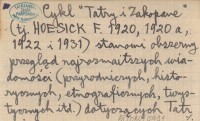 Cykl "Tatry i Zakopane"
(tj. HOESICK F. 1920, 1920 a,
1922 i 1931) stanowi obszerny
przegląd najrozmaitszych wia-
domości (przyrodniczych, histo-
rycznych, etnograficznych, turys-
tycznych itd.) dotyczących Tatr